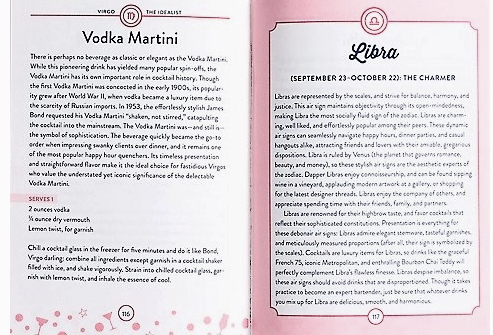 VIRGO THE IDEALIST
Vodka Martini
There is perhaps no beverage as classic or elegant as the Vodka Martini.
While this pioneering drink has yielded many popular spin-offs, the
Vodka Martini has its own important role in cocktail history. Though
the first Vodka Martini was concocted in the early 1900s, its popular-
ity grew after World War II, when vodka became a luxury item due to
the scarcity of Russian imports. In 1953, the effortlessly stylish James
Bond requested his Vodka Martini "shaken, not stirred," catapulting
the cocktail into the mainstream. The Vodka Martini was—and still is—
the symbol of sophistication. The beverage quickly became the go-to
order when impressing swanky clients over dinner, and it remains one
of the most popular happy hour quenchers. Its timeless presentation
and straightforward flavor make it the ideal choice for fastidious Virgos
who value the understated yet iconic significance of the delectable
Vodka Martini.
SERVES 1
2 ounces vodka
¾ ounce dry vermouth
Lemon twist, for garnish
Chill a cocktail glass in the freezer for five minutes and do it like Bond,
Virgo darling: combine all ingredients except garnish in a cocktail shaker
filled with ice, and shake vigorously. Strain into chilled cocktail glass, gar-
nish with lemon twist, and inhale the essence of cool.
116
Libra
(SEPTEMBER 23–OCTOBER 22): THE CHARMER
Libras are represented by the scales, and strive for balance, harmony, and
justice. This air sign maintains objectivity through its open-mindedness,
making Libra the most socially fluid sign of the zodiac. Libras are charm-
ing, well liked, and effortlessly popular among their peers. These dynamic
air signs can seamlessly navigate happy hours, dinner parties, and casual
hangouts alike, attracting friends and lovers with their amiable, gregarious
dispositions. Libra is ruled by Venus (the planet that governs romance,
beauty, and money), so these stylish air signs are the aesthetic experts of
the zodiac. Dapper Libras enjoy connoisseurship, and can be found sipping
wine in a vineyard, applauding modern artwork at a gallery, or shopping
for the latest designer trends. Libras enjoy the company of others, and
appreciate spending time with their friends, family, and partners.
Libras are renowned for their highbrow taste, and favor cocktails that
reflect their sophisticated constitutions. Presentation is everything for
these debonair air signs: Libras admire elegant stemware, tasteful garnishes,
and meticulously measured proportions (after all, their sign is symbolized by
the scales). Cocktails are luxury items for Libras, so drinks like the graceful
French 75, iconic Metropolitan, and enthralling Bourbon Chai Teddy will
perfectly complement Libra's flawless finesse. Libras despise imbalance, so
these air signs should avoid drinks that are disproportionate. Though it takes
practice to become an expert bartender, just be sure that whatever drinks
you mix up for Libra are delicious, smooth, and harmonious.
117